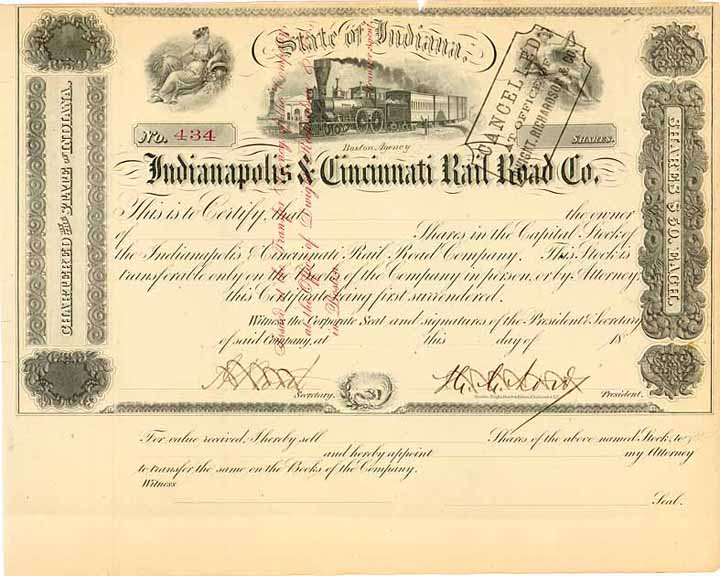 State of Indiana.
No. 434
SHARES.
Boston Agency
Indianapolis & Cincinnati Rail Road Co.
This is to Certify, that the owner
of Shares in the Capital Stock of
the Indianapolis & Cincinnati Rail Road Company. This Stock is
transferable only on the Books of the Company in person, or by Attorney
this Certificate being first surrendered.
Witness the Corporate Seal and signatures of the President & Secretary
of said Company, at this day of 18
Secretary.
President.
For value received, I hereby sell Shares of the above named Stock, to
and hereby appoint my Attorney
to transfer the same on the Books of the Company.
Witness
Seal.
CHARTERED BY THE STATE OF INDIANA.
SHARES $50. EACH.
CANCELLED
AT OFFICE OF
DWIGHT, RICHARDSON & CO.
at the Office of Dwight Richardson
in Boston
Transfer Agent